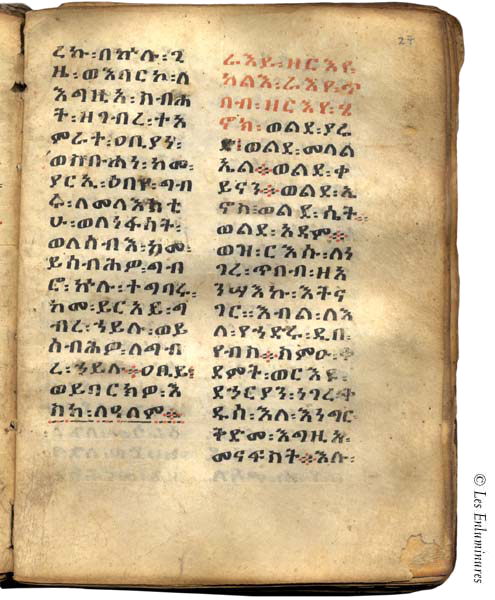 ረኩ፡በኵሉ፡ጊ
ዜ፡ወእባርኮ፡ለ
እግዚአ፡ስብሐ
ት፡ዘገብረ፡ተአ
ምራት፡ዐቢያነ፡
ወስቡሐነ፡ከመ፡
ያርኢ፡ዕበየ፡ግብ
ሩ፡ለመላእክቲ
ሁ፡ወለነፋሳት፡
ወለሰብእ፡ከመ፡
ይሰብሕዎ፡ግብ
ሮ፡ኵሉ፡ተግባሩ፡
ከመ፡ይርአይ፡ግ
ብረ፡ኀይሉ፡ወይ
ሰብሕዎ፡ለግብ
ረ፡ኀይሉ፨ዐቢይ፡
ወይባርክዎ፡እ
ስከ፡ለዓለም፨
ራእየ፡ዘርእየ
ካልእ፡ራእየ፡ጥ
በብ፡ዘርእየ፡ሄ
ኖክ፡ወልደ፡ያሬ
ድ፡ወልደ፡መላል
ኤል፨ወልደ፡ቃ
ይናን፨ወልደ፡ኢ
ኖስ፡ወልደ፡ሴት፡
ወልደ፡አዳም፨
ወዝ፡ርእሱ፡ለነ
ገረ፡ጥበብ፡ዘአ
ንሣእኩ፡እትና
ገር፡እብል፡ለእ
ለ፡የኀድሩ፡ዲበ፡
የብስ፨ስምዑ፡ቀ
ደምት፡ወርእዩ፡
ደኃርያን፡ነገረ፡ቅ
ዱስ፡እለ፡እነግር
ቅድመ፡እግዚአ፡
መናፍስት፨እሉ፡
© Les Enluminures